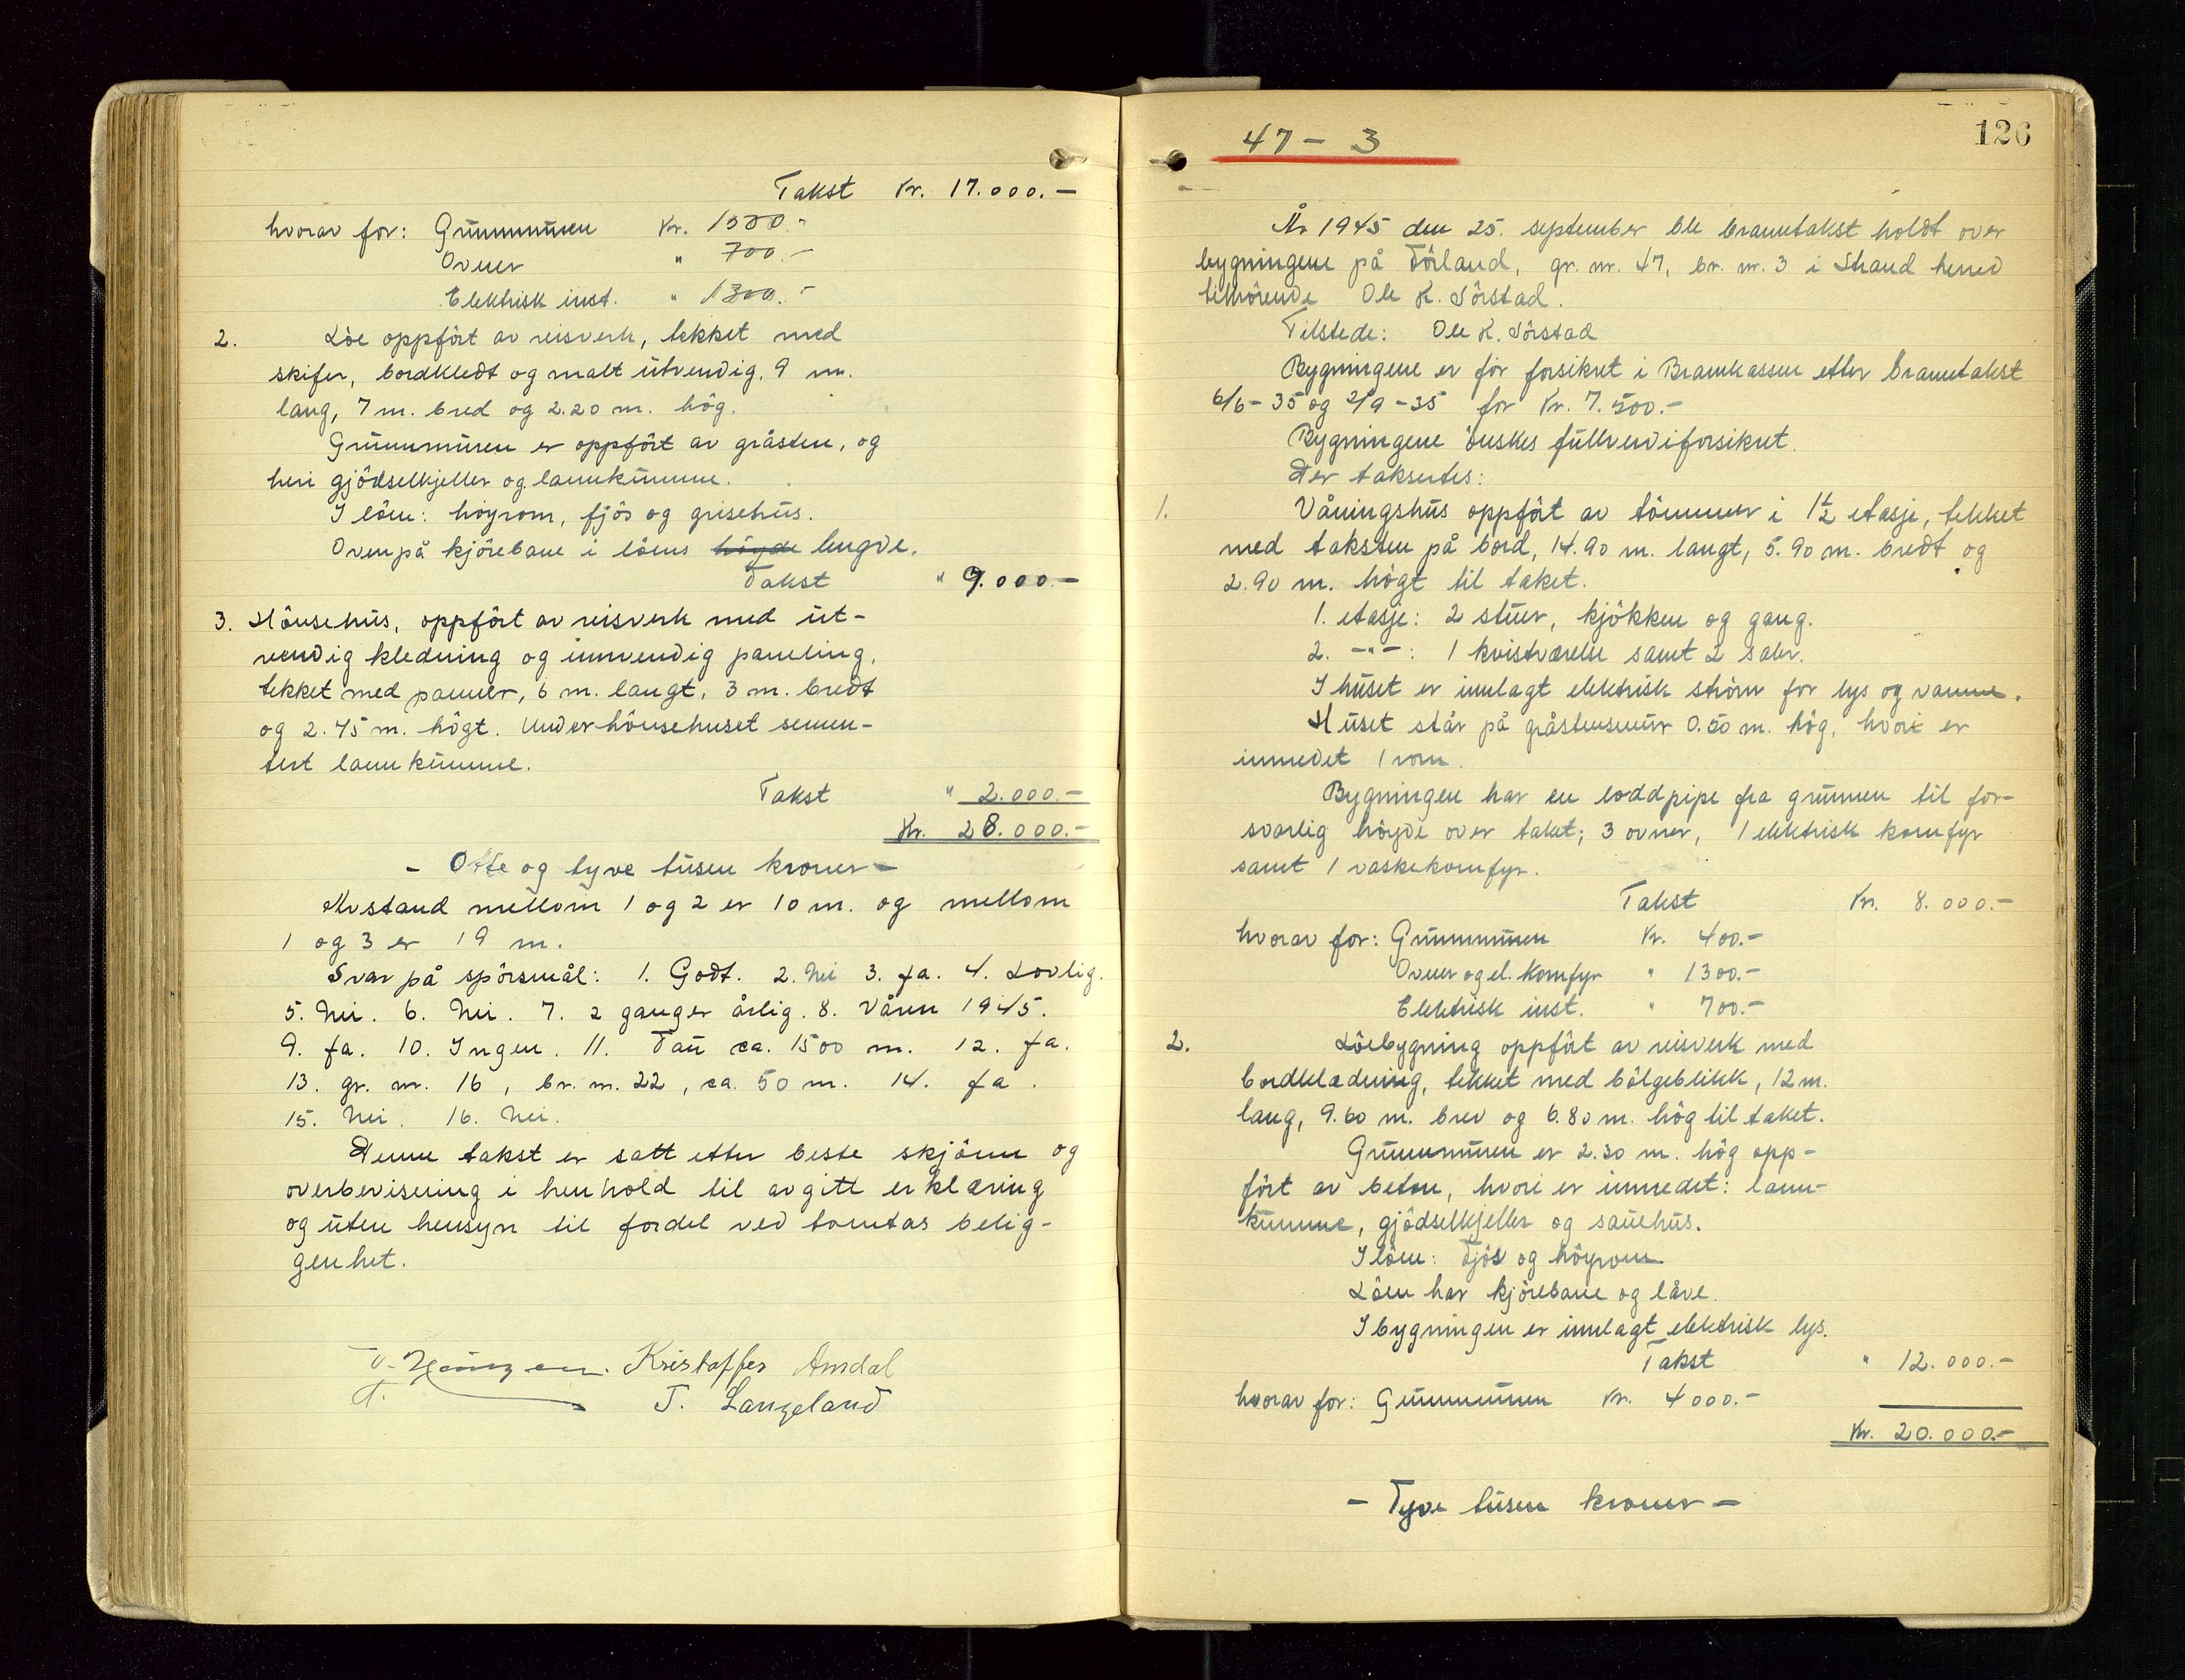 Takst Kr. 17.000.-
hvorav for: Grunnmuren Kr. 1500.-
Ovner " 700.-
Elektrisk inst. " 1300.-
2. Löe oppfört av reisverk, tekket med
skifer, bordkledt og malt utvendig, 9 m.
lang, 7 m. bred og 2.20 m. hög.
Grunnmuren er oppfört av gråsten, og
heri gjödselkjeller og lannkumme.
I löen: höyrom, fjös og grisehus.
Ovenpå kjörebane i löens höyde lengde.
Takst " 9.000.-
3. Hönsehus, oppfört av reisverk med ut-
vendig kledning og innvendig paneling,
tekket med panner, 6 m. langt, 3 m. bredt
og 2.45 m. högt. Under hönsehuset semen-
tert lannkumme.
Takst " 2.000.-
Kr. 28.000.-
- Otte og tyve tusen kroner -
Avstand mellom 1 og 2 er 10 m. og mellom
1 og 3 er 19 m.
Svar på spörsmål: 1. Godt. 2. Nei 3. Ja. 4. Lovlig.
5. Nei. 6. Nei. 7. 2 ganger årlig. 8. Våren 1945.
9. Ja. 10. Ingen. 11. Tau ca. 1500 m. 12. Ja.
13. gr. nr. 16, br. nr. 22, ca. 50 m. 14. Ja.
15. Nei. 16. Nei.
Denne takst er satt etter beste skjönn og
overbevisning i henhold til avgitt erklæring
og uten hensyn til fordel ved tomtas belig-
genhet.
Kristoffer Amdal
T. Langeland
47 - 3
126
År 1945 den 25. september ble branntakst holdt over
bygningene på Törland, gr. nr. 47, br. nr. 3 i Strand herred
tilhörende Ole K. Törstad.
Tilstede: Ole K. Törstad
Bygningene er för forsikret i Brannkassen etter branntakst
6/6-35 og 2/9-35 for Kr. 7.500.-
Bygningene önskes fullverdiforsikret.
Der takseres:
1. Våningshus oppfört av tömmer i 1½ etasje, tekket
med taksten på bord, 14.90 m. langt, 5.90 m. bredt og
2.90 m. högt til taket.
1. etasje: 2 stuer, kjökken og gang.
2. -"-: 1 kvistværelse samt 2 saler.
I huset er innlagt elektrisk ström for lys og varme.
Huset står på gråstensmur 0.50 m. hög, hvori er
innredet 1 rom.
Bygningen har en loddpipe fra grunnen til for-
svarlig höyde over taket; 3 ovner, 1 elektrisk komfyr
samt 1 vaskekomfyr.
Takst Kr. 8.000.-
hvorav for: Grunnmuren Kr. 400.-
Ovner og el. komfyr " 1300.-
Elektrisk inst. " 700.-
2. Löebygning oppfört av reisverk med
bordkledning, tekket med bölgeblikk, 12 m.
lang, 9.60 m. bred og 6.80 m. hög til taket.
Grunnmuren er 2.30 m. hög opp-
fört av beton, hvori er innredet: lann-
kumme, gjödselkjeller og sauehus.
I löen: Fjös og höyrom
Löen har kjörebane og låve.
I bygningen er innlagt elektrisk lys.
Takst " 12.000.-
hvorav for: Grunnmuren Kr. 4000.-
Kr. 20.000.-
- Tyve tusen kroner -